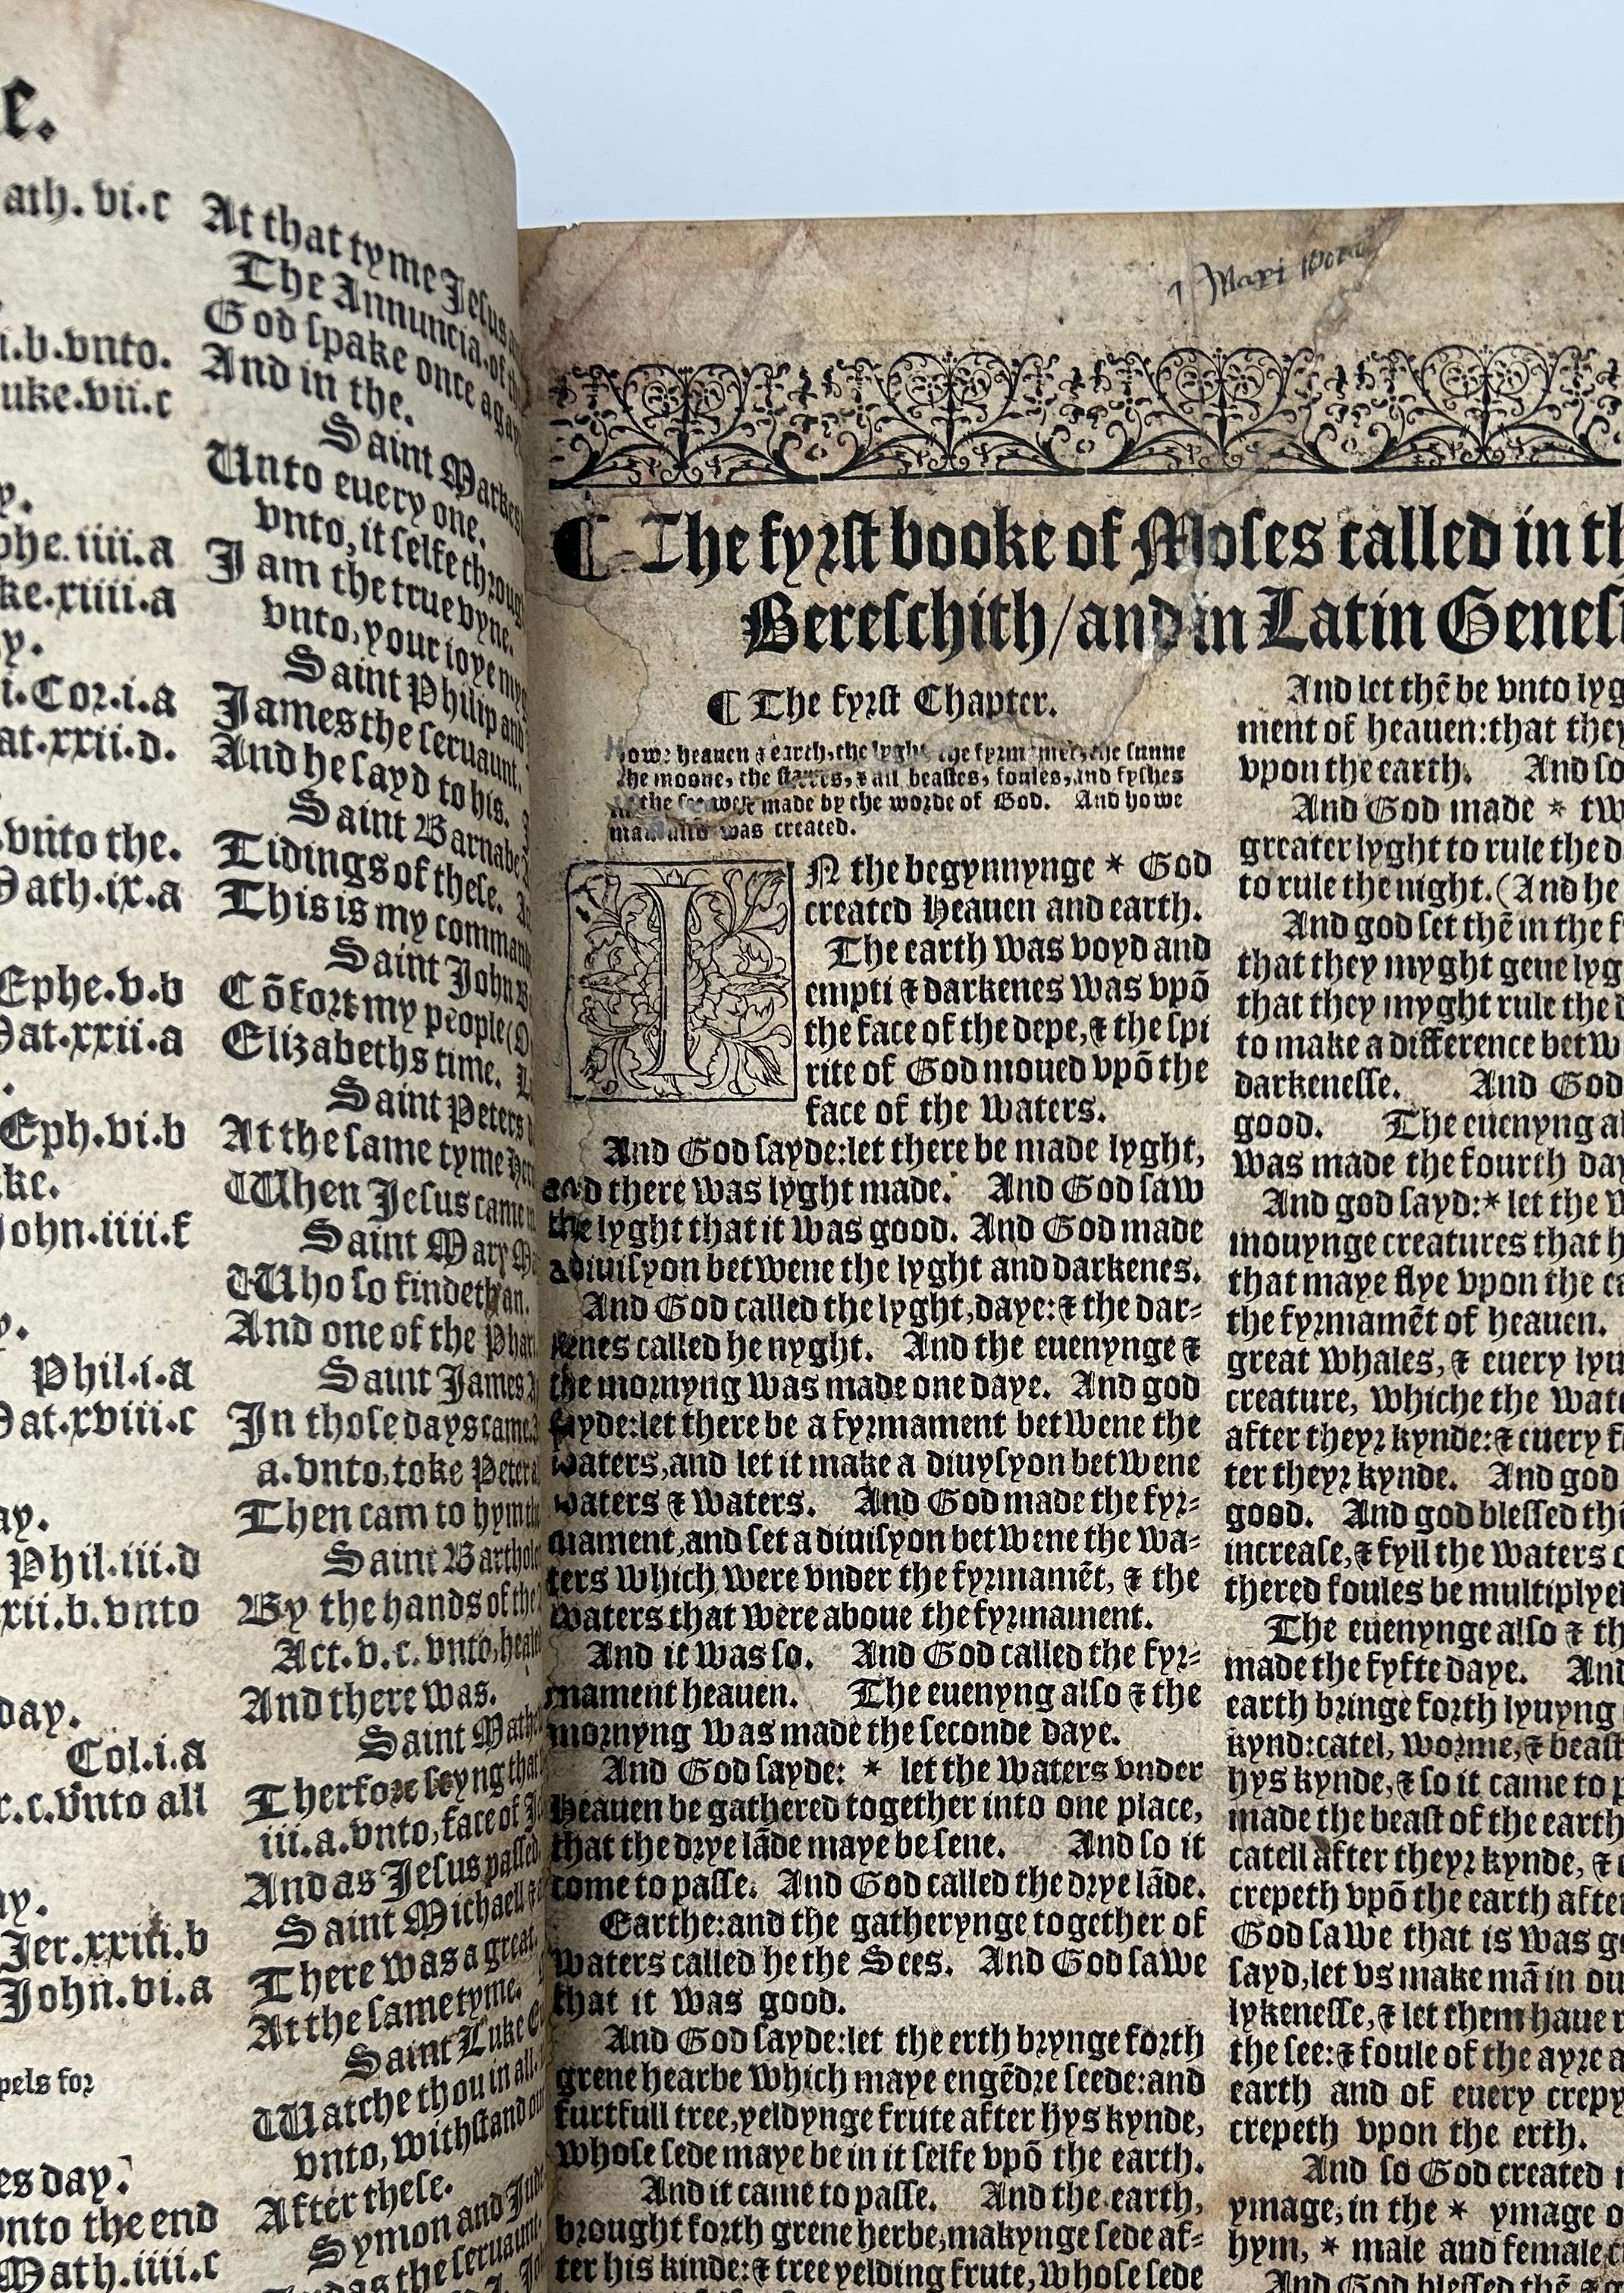 e.
ath. vi.c
i.b.vnto.
uke.vii.c
y.
phe.iiii.a
ke.xiiii.a
y.
i.Cor.i.a
at.xxii.d.
.vnto the.
Math.ix.a
Ephe.v.b
Mat.xxii.a
Eph.vi.b
ke.
John.iiii.f
y.
Phil.i.a
Mat.xviii.c
ay.
Phil.iii.d
xii.b.vnto
day.
Col.i.a
r.c.vnto all
ay.
Jer.xxiii.b
John.vi.a
pels for
es day.
onto the end
Math.iiii.c
At that tyme Jesus
The Annuncia.of
God spake once agay
And in the.
Saint Markes
Vnto euery one.
vnto, it selfe throug
I am the true vyne.
vnto, your ioye
Saint Philip and
James the seruaunt.
And he sayd to his.
Saint Barnabe
Tidings of these.
This is my comman
Saint John
Cõfort my people
Elizabeths time.
Saint Peters
At the same tyme
When Jesus came
Saint Mary
Who so findeth an.
And one of the Phari
Saint James
In those days came
a.vnto, toke Peter
Then cam to hym
Saint Barthol
By the hands of the
Act.v.c. vnto, heale
And there was.
Saint Math
Therfore seyng that
iii.a.vnto, face of
And as Jesus passed
Saint Michaell
There was a great.
At the same tyme.
Saint Luke
Watche thou in all.
vnto, withstand
After these.
Symon and Jude
the seruaunt
¶ The fyrst booke of Moses called in th
Bereschith/and in Latin Genes
¶ The fyrst Chapter.
Howe heauen & earth, the lyght, the fyrmamet, the sunne
the moone, the starres, & all beastes, foules, and fyshes
the see were made by the worde of God. And howe
man was created.
IN the begynnynge * God
created Heauen and earth.
The earth was voyd and
empti & darkenes was vpõ
the face of the depe, & the spi
rite of God moued vpõ the
face of the waters.
And God sayde:let there be made lyght,
and there was lyght made. And God saw
the lyght that it was good. And God made
a diuisyon betwene the lyght and darkenes.
And God called the lyght, daye: & the dar=
kenes called he nyght. And the euenynge &
the mornyng was made one daye. And god
sayde:let there be a fyrmament betwene the
waters, and let it make a diuysyon betwene
waters & waters. And God made the fyr=
mament, and set a diuisyon betwene the wa=
ters which were vnder the fyrmamẽt, & the
waters that were aboue the fyrmament.
And it was so. And God called the fyr=
mament heauen. The euenyng also & the
mornyng was made the seconde daye.
And God sayde: * let the waters vnder
heauen be gathered together into one place,
that the drye lãde maye be sene. And so it
come to passe. And God called the drye lãde.
Earthe:and the gatherynge together of
waters called he the Sees. And God sawe
that it was good.
And God sayde:let the erth brynge forth
grene hearbe which maye engẽdre seede:and
furtfull tree, yeldynge frute after hys kynde,
whose sede maye be in it selfe vpõ the earth.
And it came to passe. And the earth,
brought forth grene herbe, makynge sede af=
ter his kinde: & tree yelding frute, whose sede
And let thẽ be vnto lyg
ment of heauen:that they
vpon the earth. And so
And God made * tw
greater lyght to rule the d
to rule the night.(And he
And god set thẽ in the f
that they myght geue lyg
that they myght rule the
to make a difference betw
darkenesse. And God
good. The euenyng a
was made the fourth day
And god sayd:* let the w
mouynge creatures that h
that maye flye vpon the e
the fyrmamẽt of heauen.
great whales, & euery lyu
creature, whiche the wat
after theyr kynde: & euery f
ter theyr kynde. And god
good. And god blessed th
increase, & fyll the waters o
thered foules be multiplye
The euenynge also & th
made the fyfte daye. And
earth bringe forth lyuyng
kynd:catel, worme, & beast
hys kynde, & so it came to p
made the beast of the earth
catell after theyr kynde, &
crepeth vpõ the earth after
God sawe that is was go
sayd, let vs make mã in ou
lykenesse, & let them haue r
the see: & foule of the ayre a
earth and of euery crepy
crepeth vpon the erth.
And so God created
ymage, in the * ymage o
hym, * male and female
And God blessed thẽ